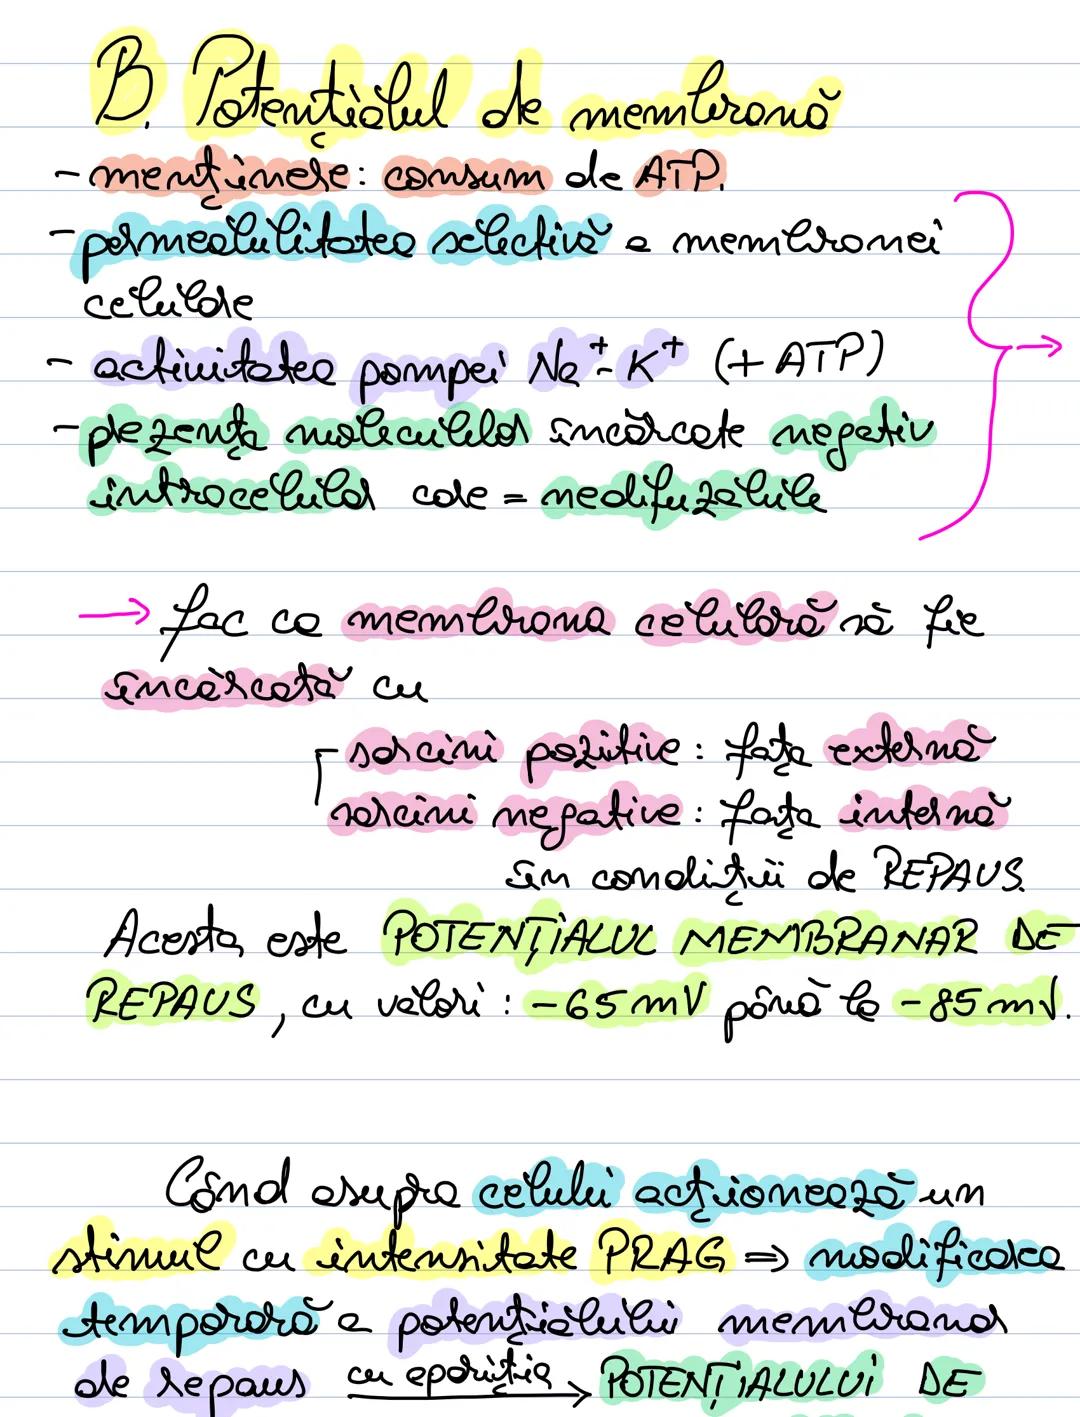 B. Potențialul de membrană
- menținere: consum de ATP.
- permeabilitatea selectivă a membranei
celulare
- activitatea pompei Na⁺-K⁺ (+ ATP)
- prezența moleculelor încărcate negativ
intracelular care = nedifuzabile
→ fac ca membrana celulară să fie
încărcată cu
sarcini pozitive: fața externă
sarcini negative: fața internă
în condiții de REPAUS.
Acesta este POTENȚIALUL MEMBRANAR DE
REPAUS, cu valori: -65 mV până la -85 mV.
Când asupra celului acționează un
stimul cu intensitate PRAG ⇒ modificarea
temporară a potențialului membranar
de repaus cu apariția → POTENȚIALULUI DE